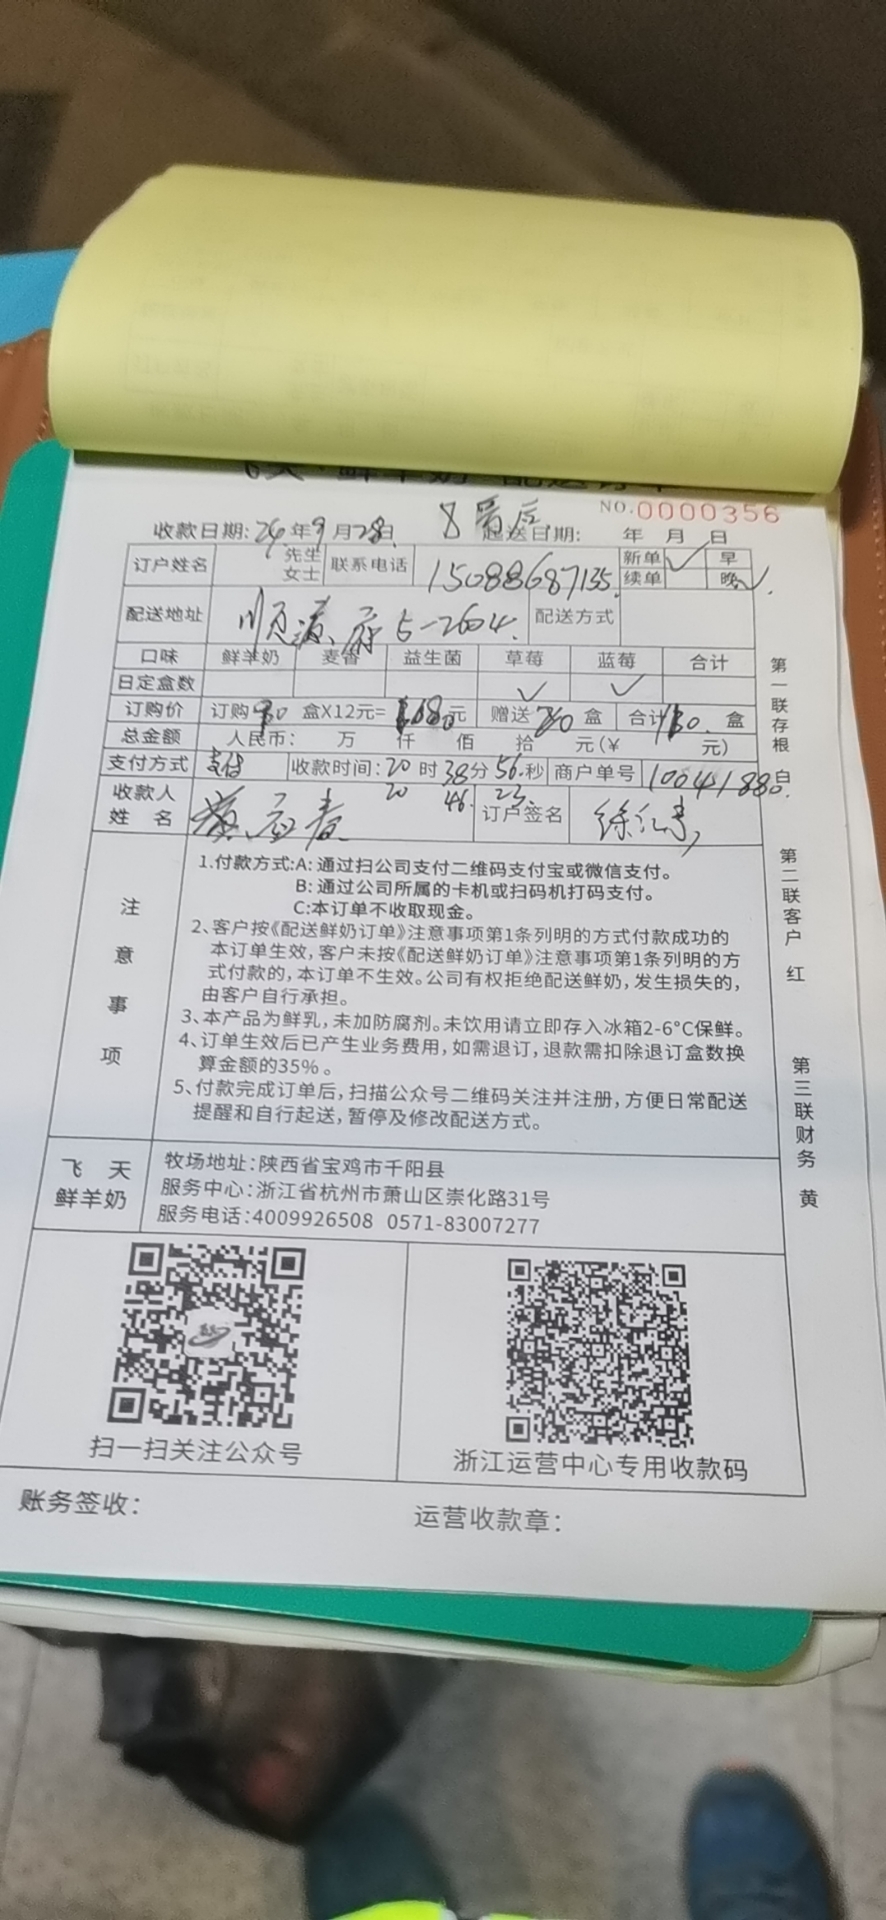 NO.0000356
收款日期: 24年9月28日 起送日期: 年 月 日
订户姓名 先生 女士 联系电话 15088687135 新单 ✓ 早
续单 晚 ✓
配送地址 5-2604 配送方式
口味 鲜羊奶 麦香 益生菌 草莓 蓝莓 合计
日定盒数 ✓ ✓
订购价 订购 盒X12元= 元 赠送 盒 合计 盒
总金额 人民币: 万 仟 佰 拾 元(¥ 元)
支付方式 支付 收款时间:20时38分56秒 商户单号 10041880
20 46 23
收款人姓名 订户签名
注意事项
1.付款方式:A:通过扫公司支付二维码支付宝或微信支付。
B:通过公司所属的卡机或扫码机打码支付。
C:本订单不收取现金。
2、客户按《配送鲜奶订单》注意事项第1条列明的方式付款成功的
本订单生效,客户未按《配送鲜奶订单》注意事项第1条列明的方
式付款的,本订单不生效。公司有权拒绝配送鲜奶,发生损失的,
由客户自行承担。
3、本产品为鲜乳,未加防腐剂。未饮用请立即存入冰箱2-6°C保鲜。
4、订单生效后已产生业务费用,如需退订,退款需扣除退订盒数换
算金额的35%。
5、付款完成订单后,扫描公众号二维码关注并注册,方便日常配送
提醒和自行起送,暂停及修改配送方式。
飞天
鲜羊奶
牧场地址:陕西省宝鸡市千阳县
服务中心:浙江省杭州市萧山区崇化路31号
服务电话:4009926508 0571-83007277
扫一扫关注公众号
浙江运营中心专用收款码
账务签收: 运营收款章:
第一联存根 白
第二联客户 红
第三联财务 黄